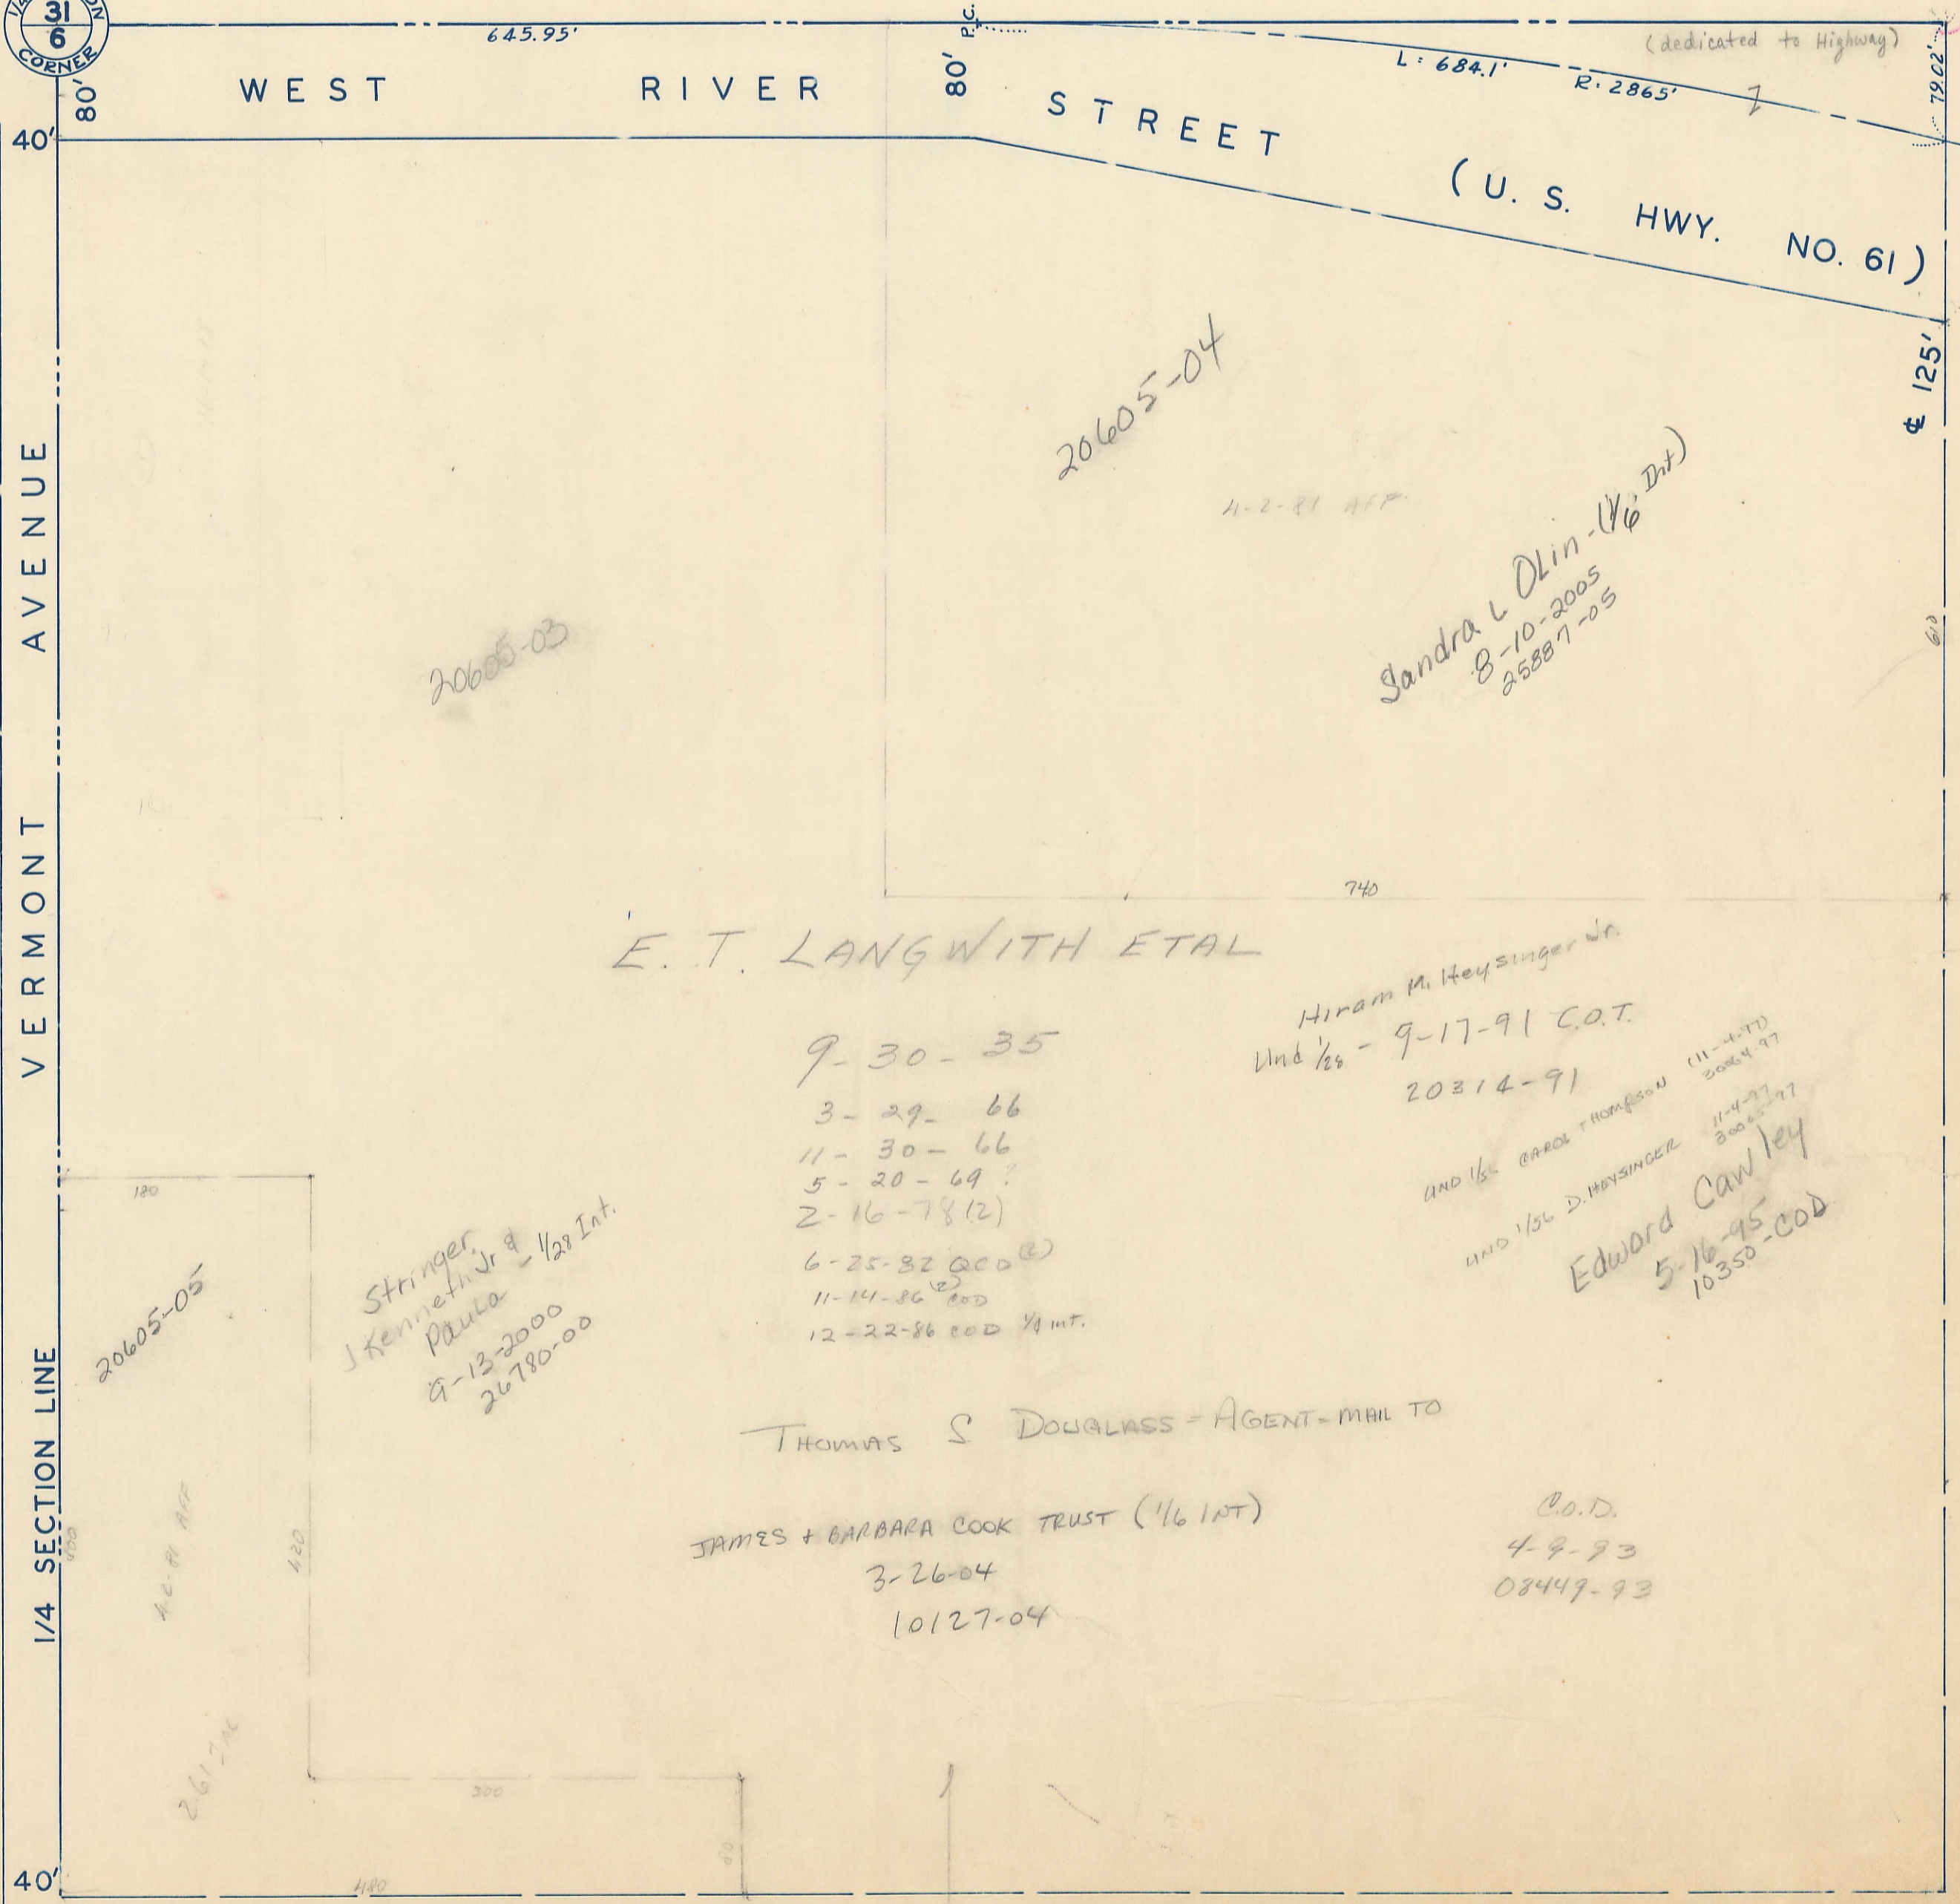 31
6
CORNER
645.95'
P.C.
(dedicated to Highway)
L: 684.1'
R: 2865'
79.02'
80'
WEST RIVER STREET
80'
(U. S. HWY. NO. 61)
40'
℄ 125'
VERMONT AVENUE
1/4 SECTION LINE
20605-04
4-2-81 AFF.
Sandra L Olin - (1/6 Int)
8-10-2005
25887-05
610
20605-03
740
E. T. LANGWITH ETAL
9-30-35
3-29-66
11-30-66
5-20-69 ?
2-16-78 (2)
6-25-82 QCD (2)
11-14-86 (2) COD
12-22-86 COD 1/4 int.
Hiram M. Heysinger Jr.
Und 1/28 - 9-17-91 C.O.T.
20314-91
UND 1/56 CAROL THOMPSON (11-4-97)
30064-97
UND 1/56 D. HEYSINGER 11-4-97
30065-97
Edward Cawley
5-16-95
10350-COD
180
20605-05
Stringer,
J Kenneth Jr & - 1/28 Int.
Paula
9-13-2000
26780-00
THOMAS S DOUGLASS = AGENT - MAIL TO
JAMES + BARBARA COOK TRUST (1/6 INT)
3-26-04
10127-04
C.O.D.
4-9-93
08449-93
400
4-2-81 AFF
420
300
80
480
40'